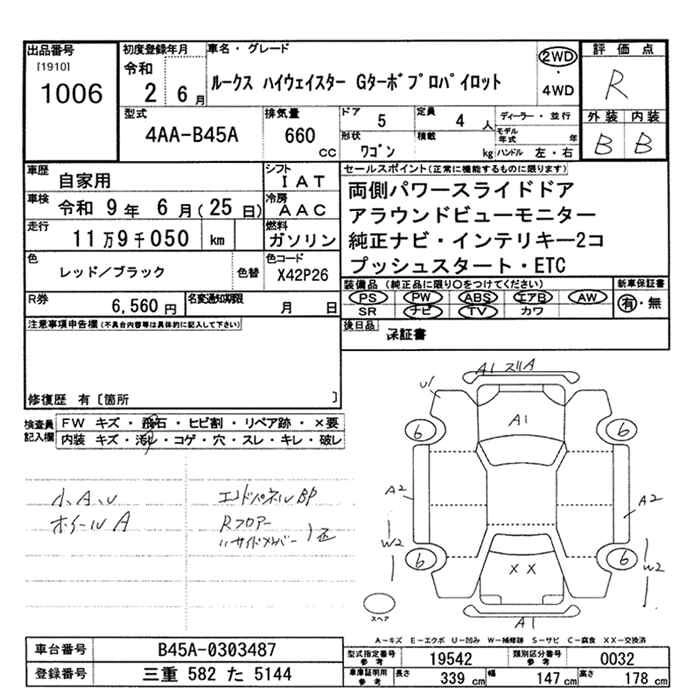 出品番号
[1910]
1006
初度登録年月
令和
2 6月
車名・グレード
ルークス ハイウェイスター Gターボプロパイロット
2WD
・
4WD
評価点
R
外装 内装
B B
型式
4AA-B45A
排気量
660
CC
ドア
5
定員
4 人
形状
ワゴン
積載
kg
ディーラー・並行
モデル年式 年
ハンドル 左・右
車歴
自家用
シフト
IAT
車検
令和 9年 6月(25日)
冷房
AAC
走行
11万9千050 km
燃料
ガソリン
色
レッド/ブラック
色替
色コード
X42P26
R券
6,560円
名変通知期限
月 日
セールスポイント(正常に機能するものに限ります)
両側パワースライドドア
アラウンドビューモニター
純正ナビ・インテリキー2コ
プッシュスタート・ETC
装備品(純正品に限り○をつけてください)
PS PW ABS エアB AW
SR ナビ TV カワ
新車保証書
有・無
後日品
保証書
注意事項申告欄(不具合内容等は具体的に記入して下さい)
修復歴 有〔箇所 〕
検査員
記入欄
FW キズ・飛石・ヒビ割・リペア跡・×要
内装 キズ・汚れ・コゲ・穴・スレ・キレ・破レ
小A、U
ホイールA
エンドパネルBP
Rフロアー
〃サイドメンバー 1歪
A1 スリA
U1
A1
6
6
A2
A2
W2
W2
6
6
XX
A1
スペア
A-キズ E-エクボ U-凹み W-補修跡 S-サビ C-腐食 XX-交換済
車台番号
B45A-0303487
登録番号
三重 582 た 5144
型式指定番号
参考
19542
類別区分番号
参考
0032
車庫証明用
参考
長さ
339 cm
幅
147 cm
高さ
178 cm